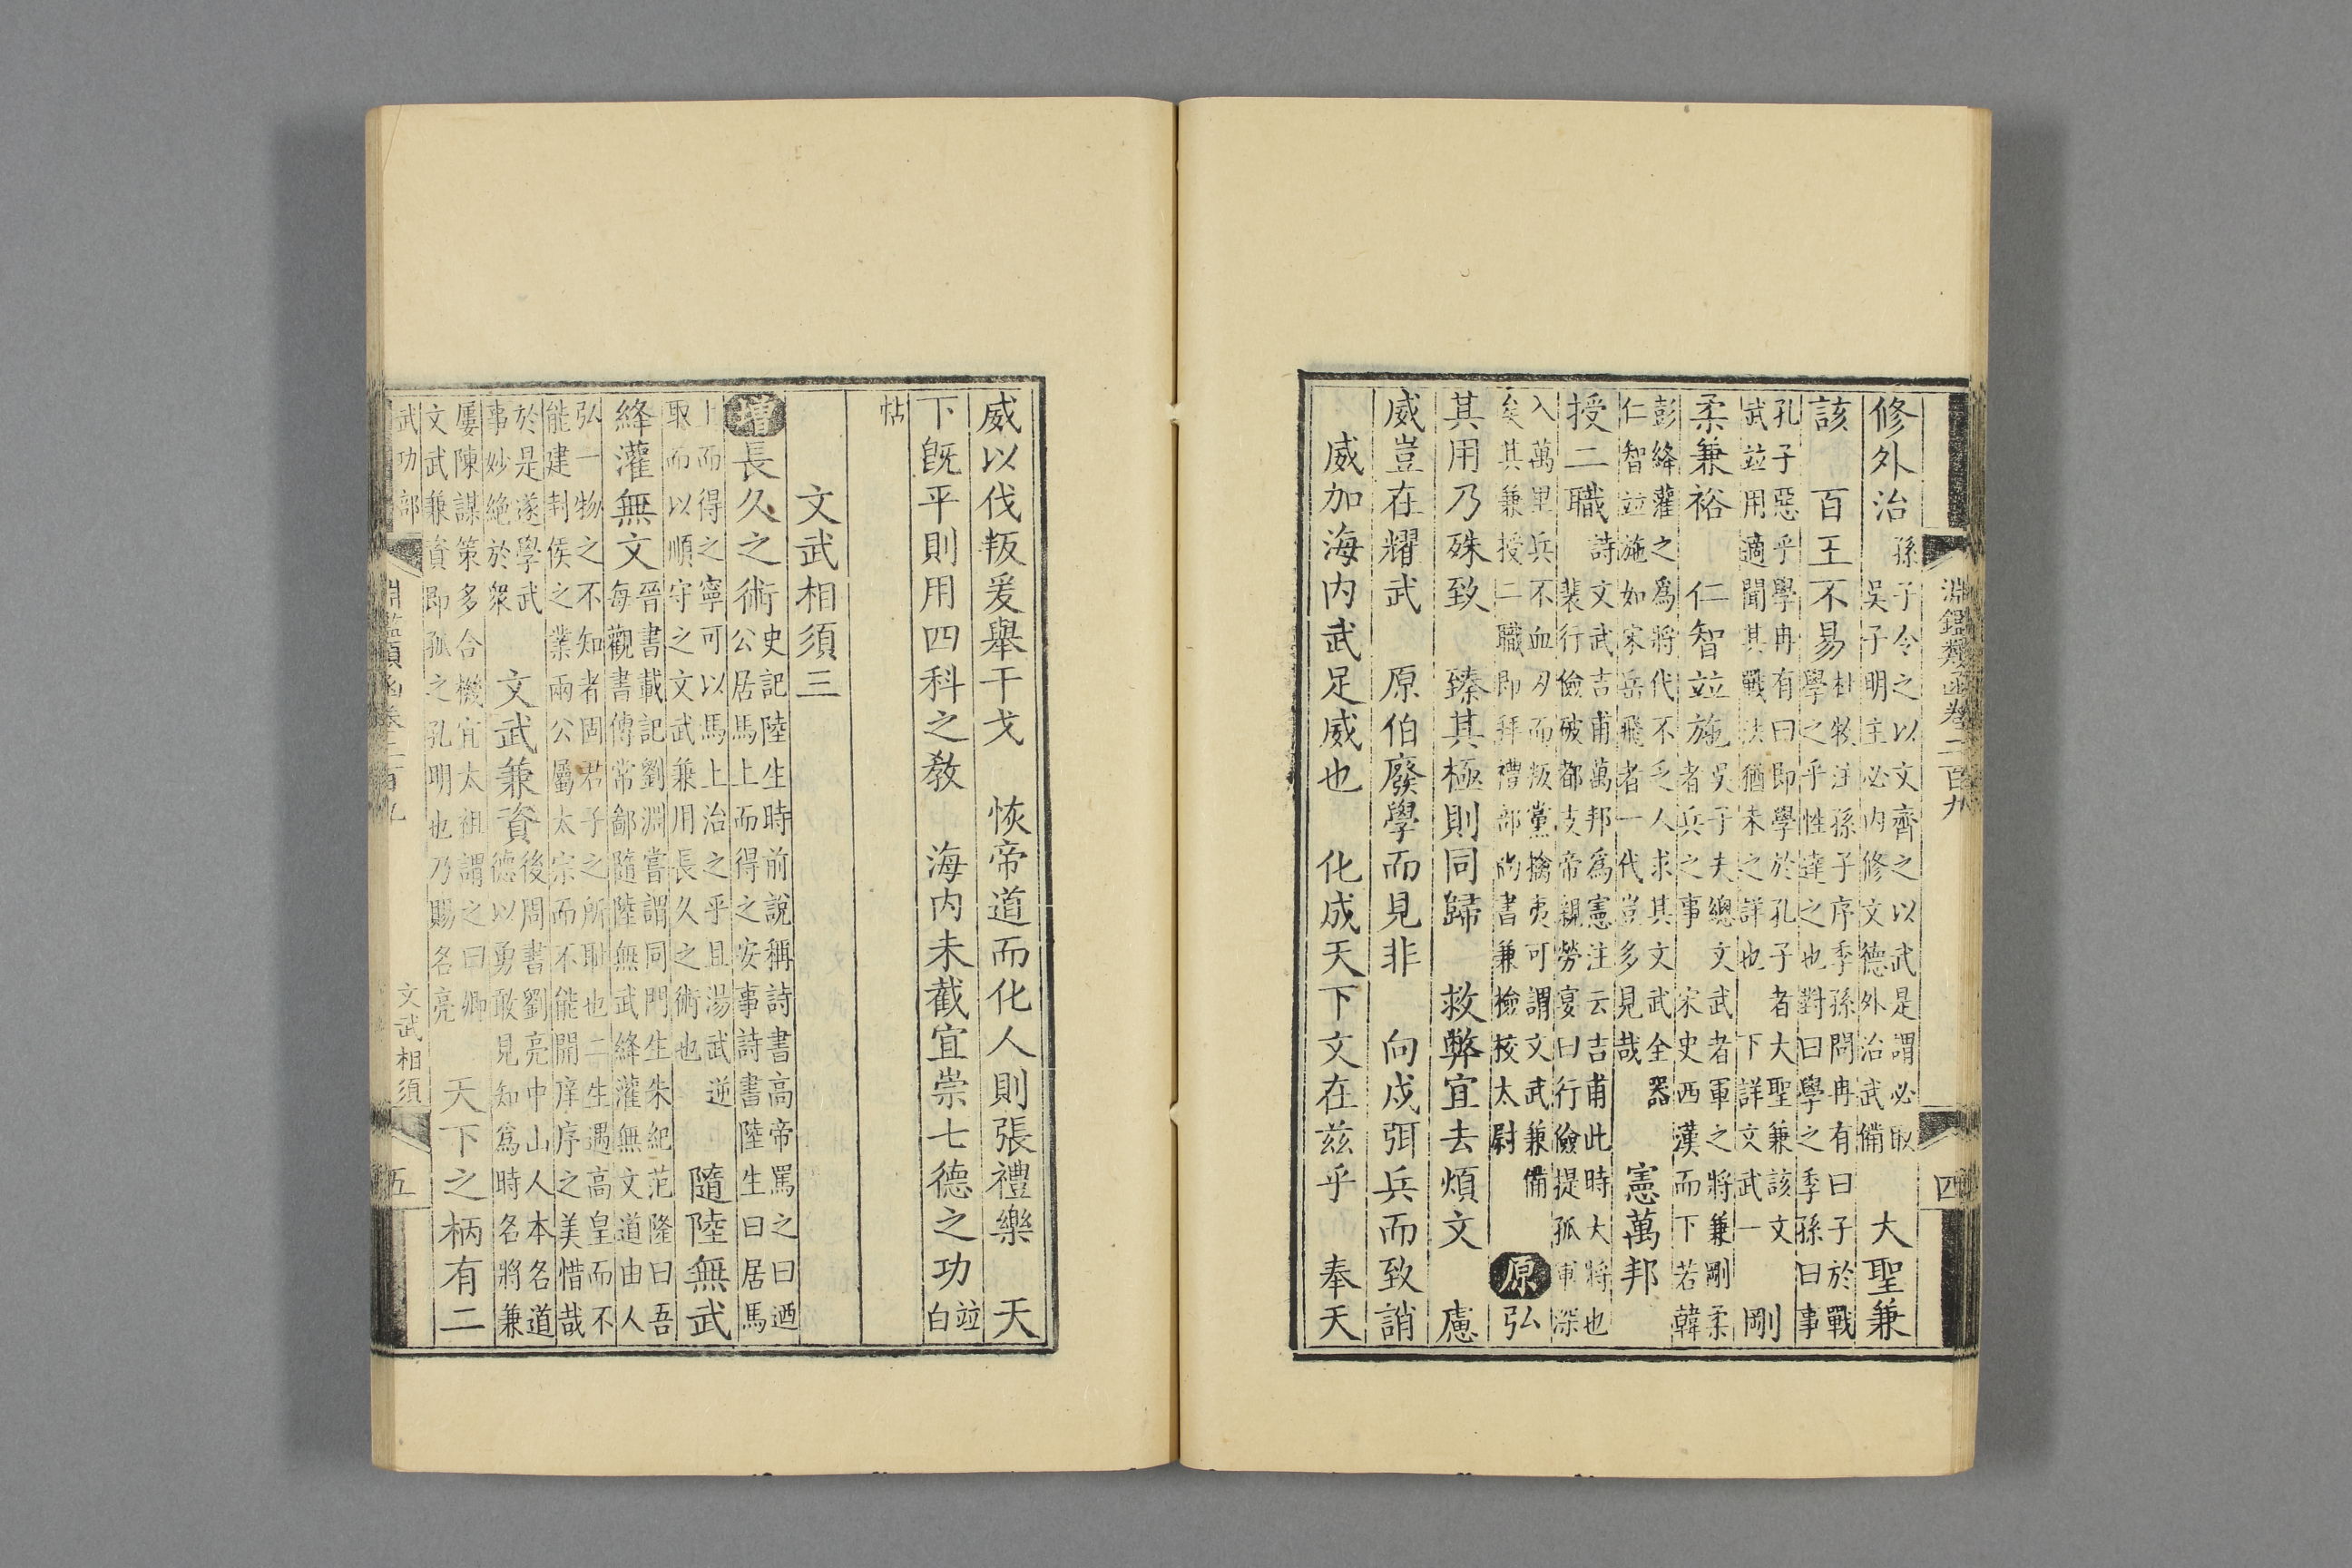 淵鑑類函卷二百九
四
修外治
孫子令之以文齊之以武是謂必取
吳子明主必內修文德外治武備
大聖兼
該
百王不易
杜牧注孫子序季孫問冉有曰子於戰
學之乎性達之也對曰學之季孫曰事
孔子惡乎學冉有曰即學於孔子者大聖兼該文
武竝用適聞其戰法猶未之詳也
下詳文武一
剛
柔兼裕
仁智竝施
吳子夫總文武者軍之將兼剛柔
者兵之事
宋史西漢而下若韓
彭絳灌之爲將代不乏人求其文武全器
仁智竝施如宋岳飛者一代豈多見哉
憲萬邦
授二職
詩文武吉甫萬邦爲憲注云吉甫此時大將也
裴行儉破都支帝親勞宴曰行儉提孤軍深
入萬里兵不血刃而叛黨擒夷可謂文武兼備
矣其兼授二職即拜禮部尚書兼檢校太尉
原弘
其用乃殊致
臻其極則同歸
救弊宜去煩文
慮
威豈在耀武
原伯廢學而見非
向戍弭兵而致誚
威加海內武足威也
化成天下文在茲乎
奉天
威以伐叛爰舉干戈
恢帝道而化人則張禮樂
天
下旣平則用四科之敎
海內未截宜崇七德之功
竝白
帖
文武相須三
增長久之術
史記陸生時前說稱詩書高帝罵之曰迺
公居馬上而得之安事詩書陸生曰居馬
上而得之寧可以馬上治之乎且湯武逆
取而以順守之文武兼用長久之術也
隨陸無武
絳灌無文
晉書載記劉淵嘗謂同門生朱紀范隆曰吾
每觀書傳常鄙隨陸無武絳灌無文道由人
弘一物之不知者固君子之所恥也二生遇高皇而不
能建封侯之業兩公屬太宗而不能開庠序之美惜哉
於是遂學武
事妙絕於衆
文武兼資
後周書劉亮中山人本名道
德以勇敢見知爲時名將兼
屢陳謀策多合機宜太祖謂之曰卿
文武兼資即孤之孔明也乃賜名亮
天下之柄有二
武功部
淵鑑類函卷二百九
文武相須
五